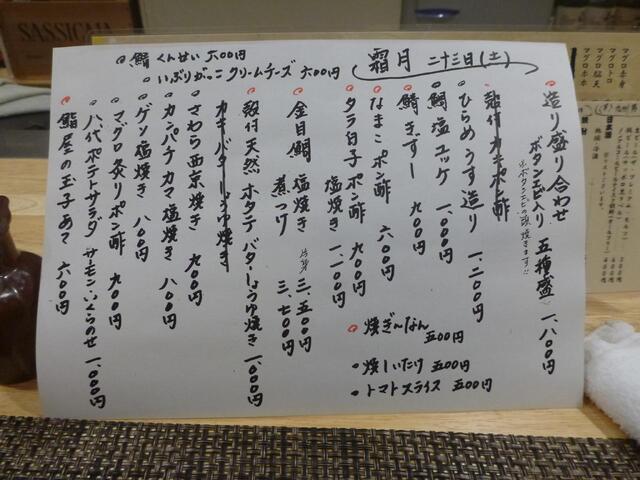 霜月 二十三日(土)
造り盛り合わせ
ボタンエビ入り 五種盛 一、八〇〇円
殻付カキポン酢
ひらめうす造り 一、二〇〇円
鯛塩ユッケ 一、〇〇〇円
鯖きずし 九〇〇円
なまこポン酢 六〇〇円
タラ白子ポン酢
塩焼き 一、二〇〇円
金目鯛 塩焼き 三、五〇〇円
煮つけ 三、七〇〇円
殻付天然ホタテバターしょうゆ焼き 一、〇〇〇円
カキバターしょうゆ焼き
さわら西京焼き 九〇〇円
カンパチカマ塩焼き 八〇〇円
ゲソ塩焼き 八〇〇円
マグロ炙りポン酢 九〇〇円
八代ポテトサラダ サーモンいくらのせ 一、〇〇〇円
鮨屋の玉子あて 六〇〇円
くんせい 六〇〇円
いぶりがっこクリームチーズ 六〇〇円
焼ぎんなん 五〇〇円
焼しいたけ 五〇〇円
トマトスライス 五〇〇円
SASSICAIA
日本酒